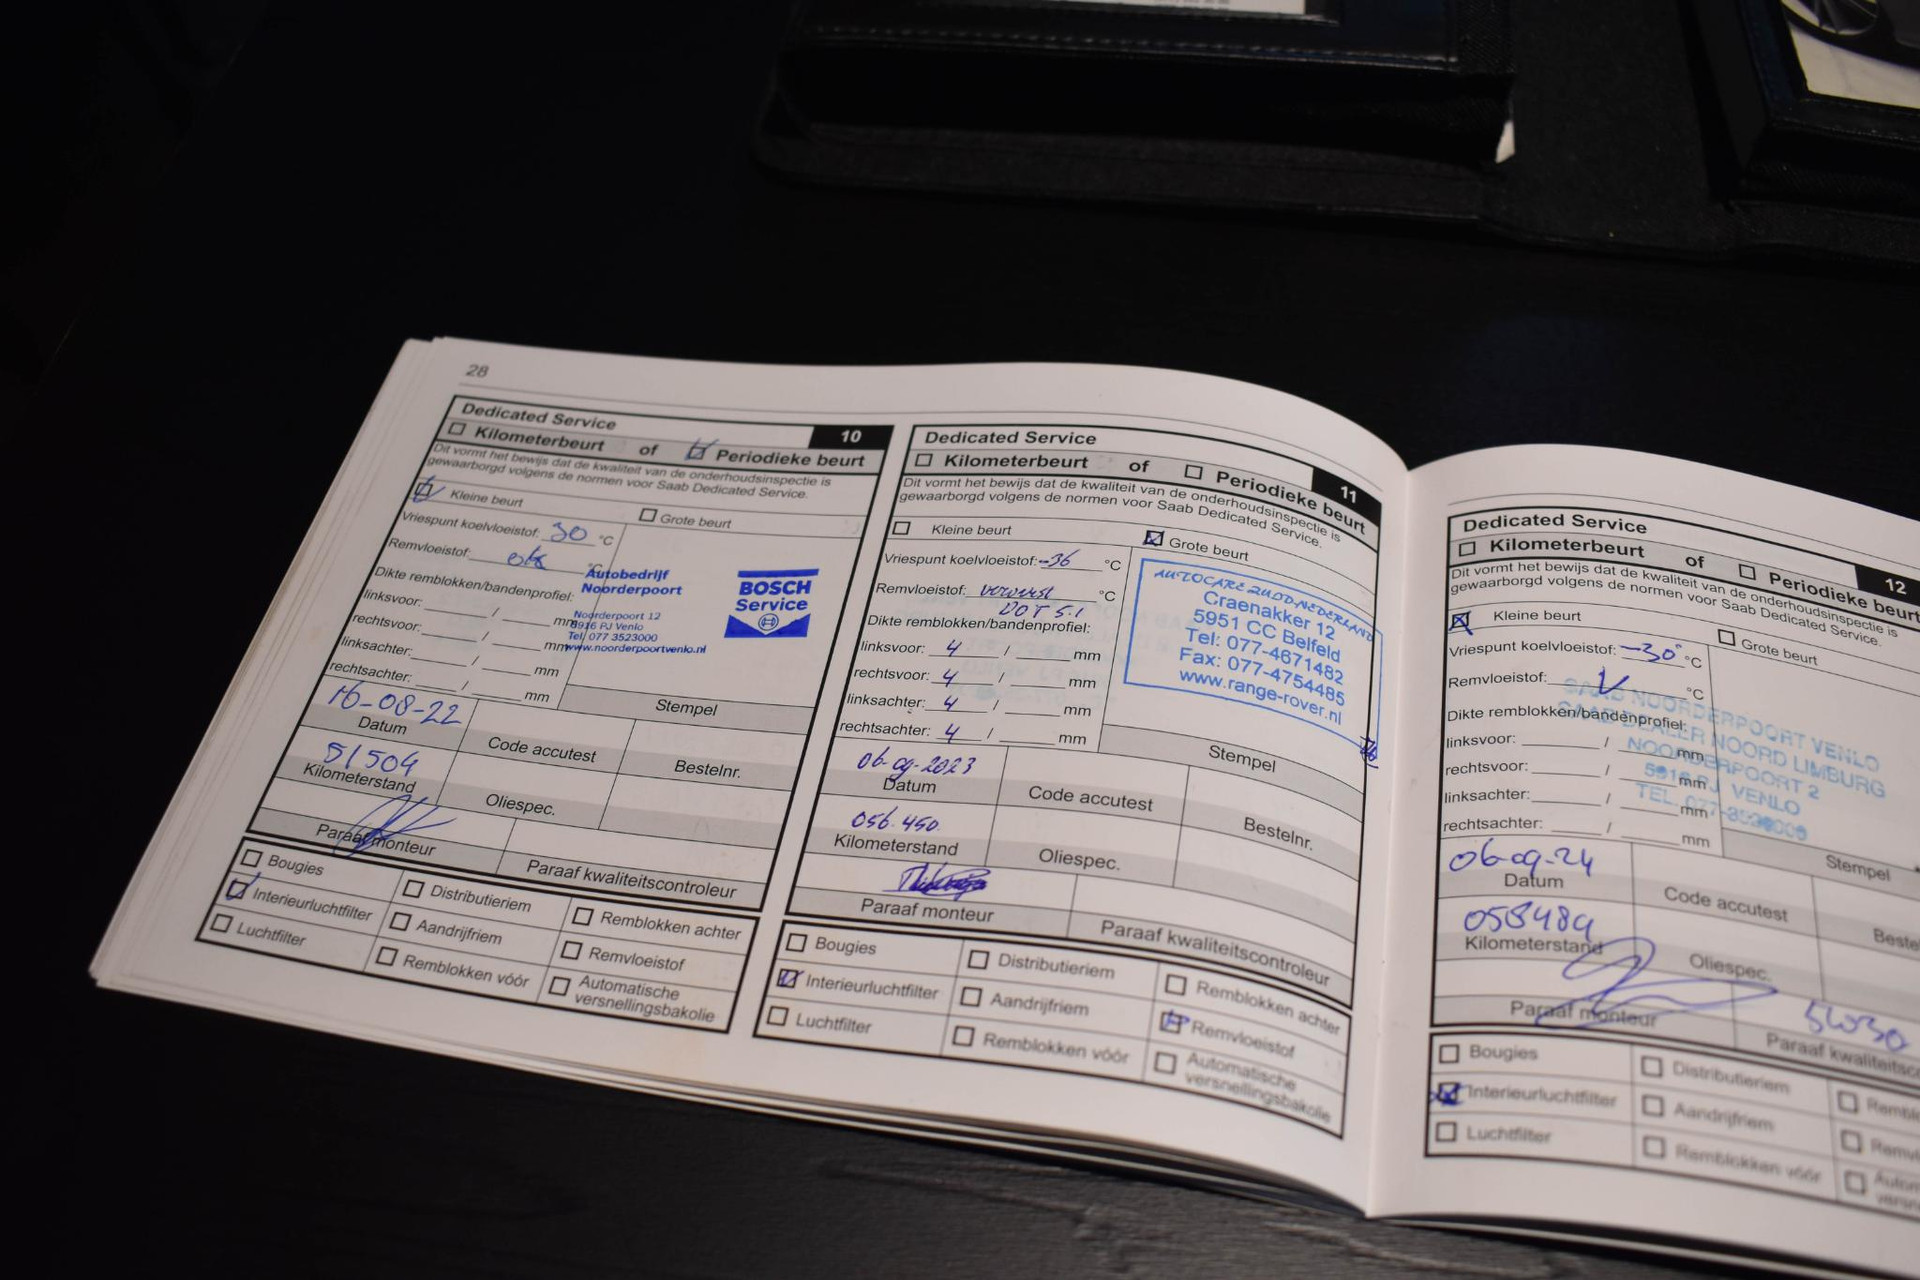 28
Dedicated Service
10
Kilometerbeurt of Periodieke beurt
Dit vormt het bewijs dat de kwaliteit van de onderhoudsinspectie is
gewaarborgd volgens de normen voor Saab Dedicated Service.
Kleine beurt
Grote beurt
Vriespunt koelvloeistof: 30 °C
Remvloeistof: ok °C
Dikte remblokken/bandenprofiel:
linksvoor: / mm
rechtsvoor: / mm
linksachter: / mm
rechtsachter: / mm
Autobedrijf
Noorderpoort
Noorderpoort 12
5916 PJ Venlo
Tel. 077 3523000
www.noorderpoortvenlo.nl
BOSCH
Service
Stempel
16-08-22
Datum
Code accutest
Bestelnr.
51504
Kilometerstand
Oliespec.
Paraaf monteur
Paraaf kwaliteitscontroleur
Bougies
Distributieriem
Remblokken achter
Interieurluchtfilter
Aandrijfriem
Remvloeistof
Luchtfilter
Remblokken vóór
Automatische
versnellingsbakolie
Dedicated Service
11
Kilometerbeurt of Periodieke beurt
Dit vormt het bewijs dat de kwaliteit van de onderhoudsinspectie is
gewaarborgd volgens de normen voor Saab Dedicated Service.
Kleine beurt
Grote beurt
Vriespunt koelvloeistof: -36 °C
Remvloeistof: ververst °C
DOT 5.1
Dikte remblokken/bandenprofiel:
linksvoor: 4 / mm
rechtsvoor: 4 / mm
linksachter: 4 / mm
rechtsachter: 4 / mm
AUTOCARE ZUID-NEDERLAND
Craenakker 12
5951 CC Belfeld
Tel: 077-4671482
Fax: 077-4754485
www.range-rover.nl
Stempel
06-09-2023
Datum
Code accutest
Bestelnr.
056.450
Kilometerstand
Oliespec.
Paraaf monteur
Paraaf kwaliteitscontroleur
Bougies
Distributieriem
Remblokken achter
Interieurluchtfilter
Aandrijfriem
Remvloeistof
Luchtfilter
Remblokken vóór
Automatische
versnellingsbakolie
Dedicated Service
12
Kilometerbeurt of Periodieke beurt
Dit vormt het bewijs dat de kwaliteit van de onderhoudsinspectie is
gewaarborgd volgens de normen voor Saab Dedicated Service.
Kleine beurt
Grote beurt
Vriespunt koelvloeistof: -30° °C
Remvloeistof: °C
Dikte remblokken/bandenprofiel:
linksvoor: / mm
rechtsvoor: / mm
linksachter: / mm
rechtsachter: / mm
SAAB NOORDERPOORT VENLO
SAAB DEALER NOORD LIMBURG
NOORDERPOORT 2
5916 PJ VENLO
TEL. 077-3523000
Stempel
06-09-24
Datum
Code accutest
058489
Kilometerstand
Oliespec.
Paraaf monteur
Bougies
Distributieriem
Interieurluchtfilter
Aandrijfriem
Luchtfilter
Remblokken vóór